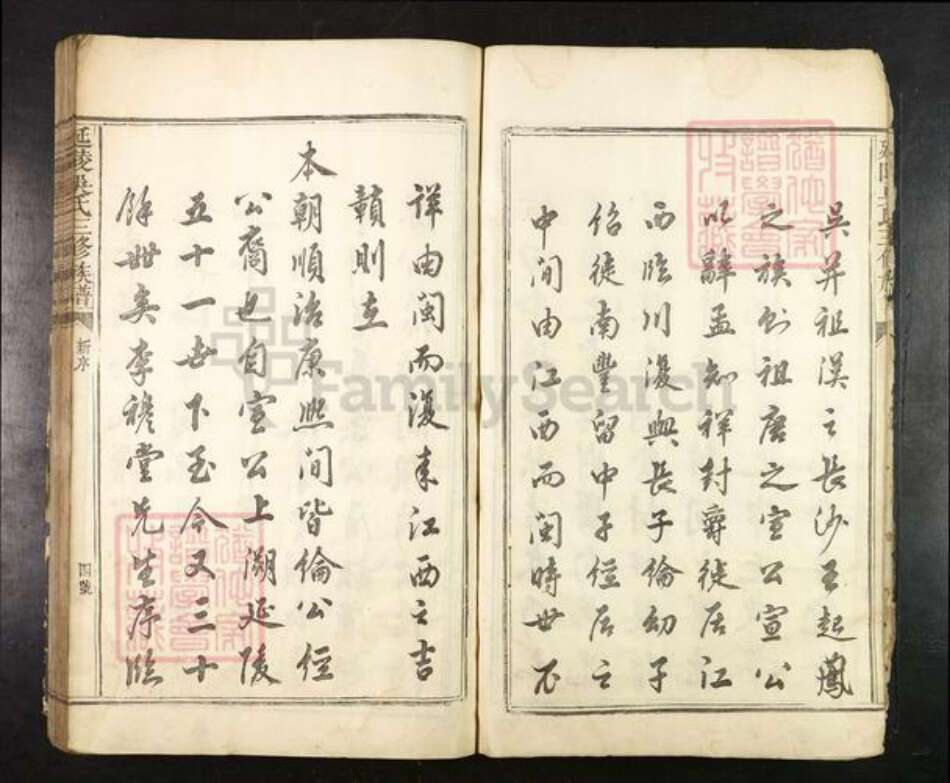 吳并祖漢之長沙王起鳳
之族則祖唐之宣公宣公
以辭孟知祥封爵徙居江
西臨川漫與長子倫幼子
佋徙南豐留中子經居之
中間由江西而閩時世不
詳由閩而漫來江西之吉
贛則在
本朝順治康熙間皆倫公經
公裔也自宣公上溯延陵
五十一世下至今又三十
餘世矣李襟堂先生序臨
延陵吳氏三修族譜
新序
四號
FamilySearch